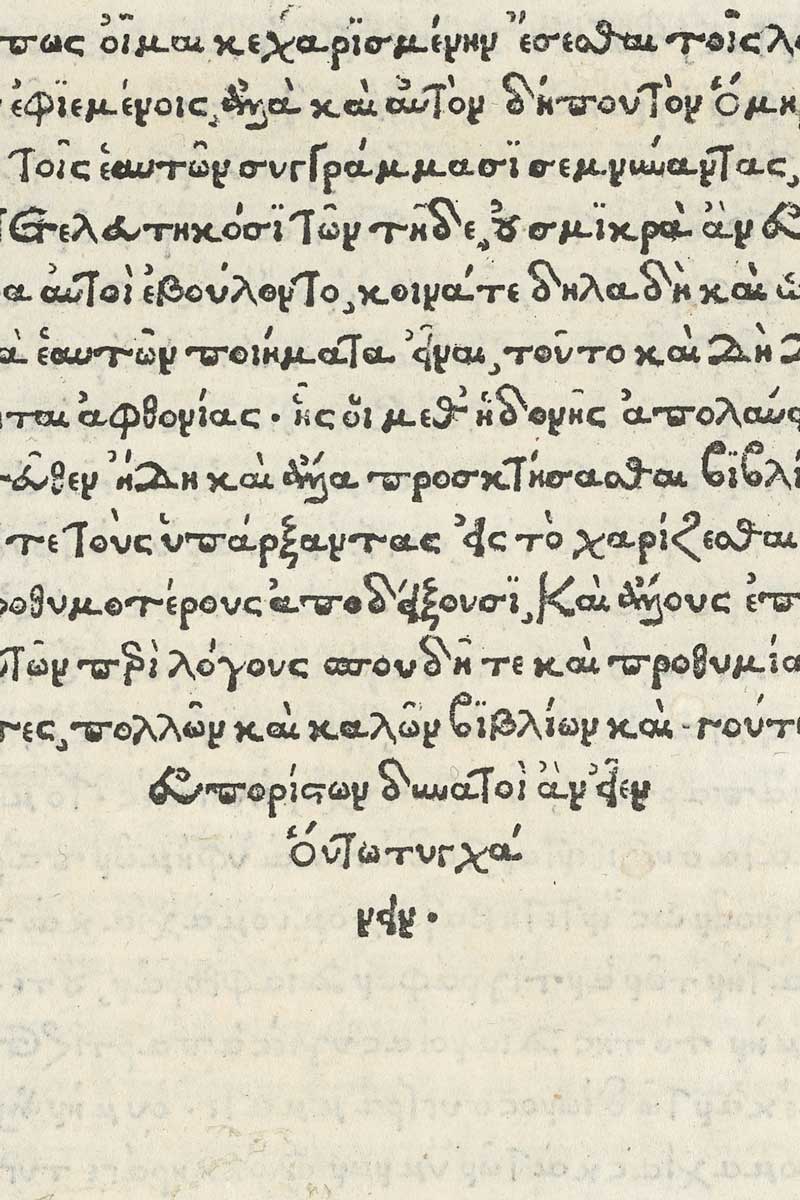 πως οἶμαι κεχαρϊσμένην ἔσεσθαι τοῖς λ
ἐφϊεμένοις, ἀλλὰ καὶ αὐτὸν δήπου τὸν Ὅμη
τοῖς ἑαυτῶν συγγράμμασϊ σεμνύναντας,
τετελευτηκόσϊ τῶν τῇδε, οὐ σμϊκρὰ ἀν εὐ
α αὐτοὶ ἐβούλοντο, κοινά τε δηλαδὴ καὶ
ὰ ἑαυτῶν ποιήματα εἶναι, τοῦτο καὶ δὴ
ται ἀφθονίας. ἧς οἱ μεθ' ἡδονῆς ἀπολαύ
εῦθεν ἤδη καὶ ἄλλα προσκτήσασθαι βϊβλί
τε τοὺς ὑπάρξαντας εἰς τὸ χαρίζεσθαι
ροθυμοτέρους ἀποδείξουσϊ, Καὶ ἄλλους ἐπ
τῶν περὶ λόγους σπουδῇ τε καὶ προθυμία
τες, πολλῶν καὶ καλῶν βϊβλίων καὶ
εὐπορίστων δυνατοὶ ἀν εἶεν
Οὕτω τυγχά
νειν.